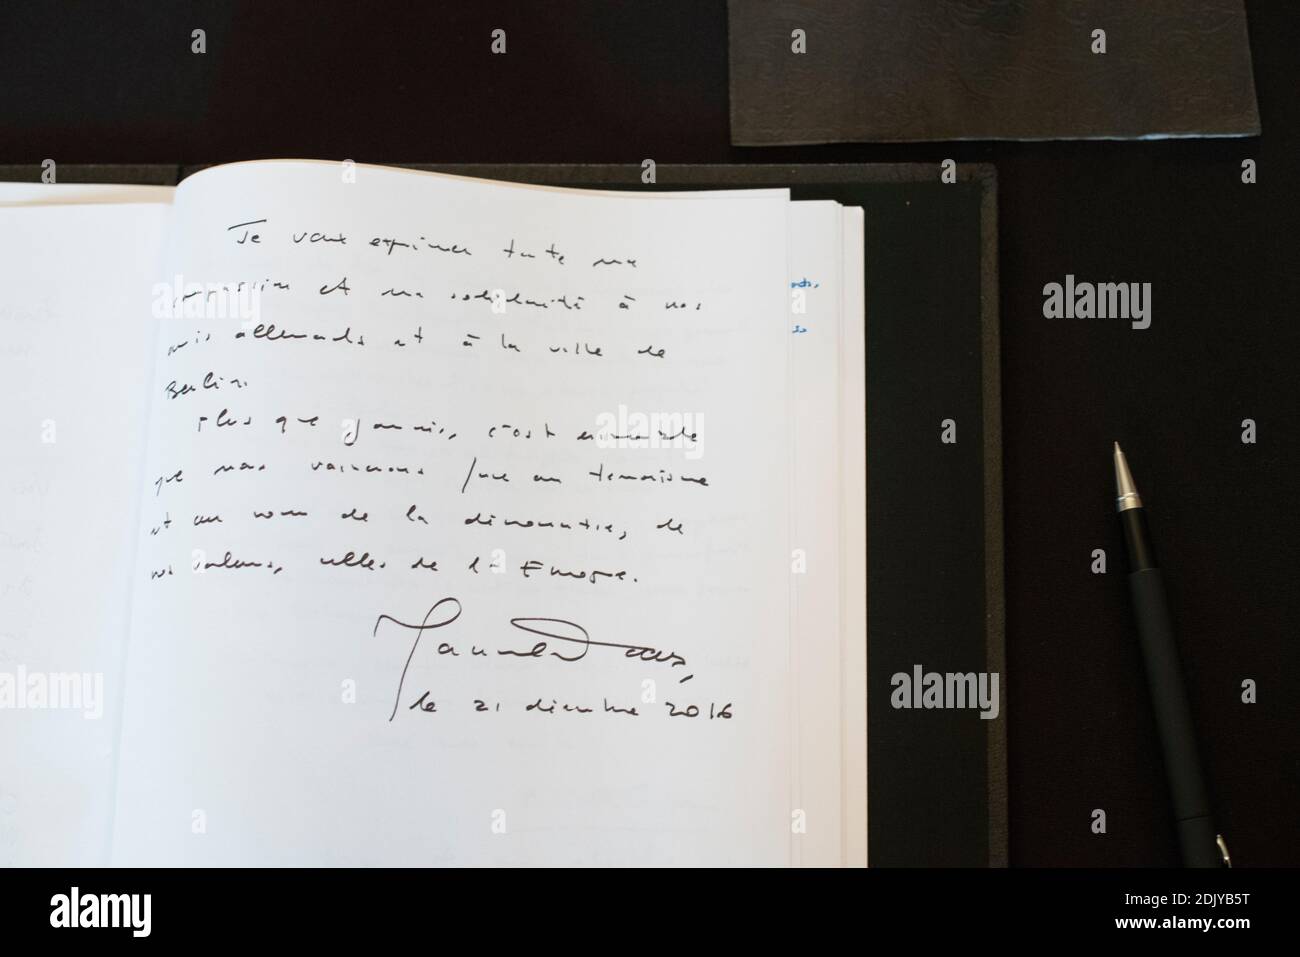 Je veux exprimer toute ma
compassion et ma solidarité à nos
amis allemands et à la ville de
Berlin.
Plus que jamais, c'est ensemble
que nous vaincrons face au terrorisme
et au nom de la démocratie, de
nos valeurs, celles de l'Europe.
le 21 décembre 2016
alamy
Image ID: 2DJYB5T
www.alamy.com